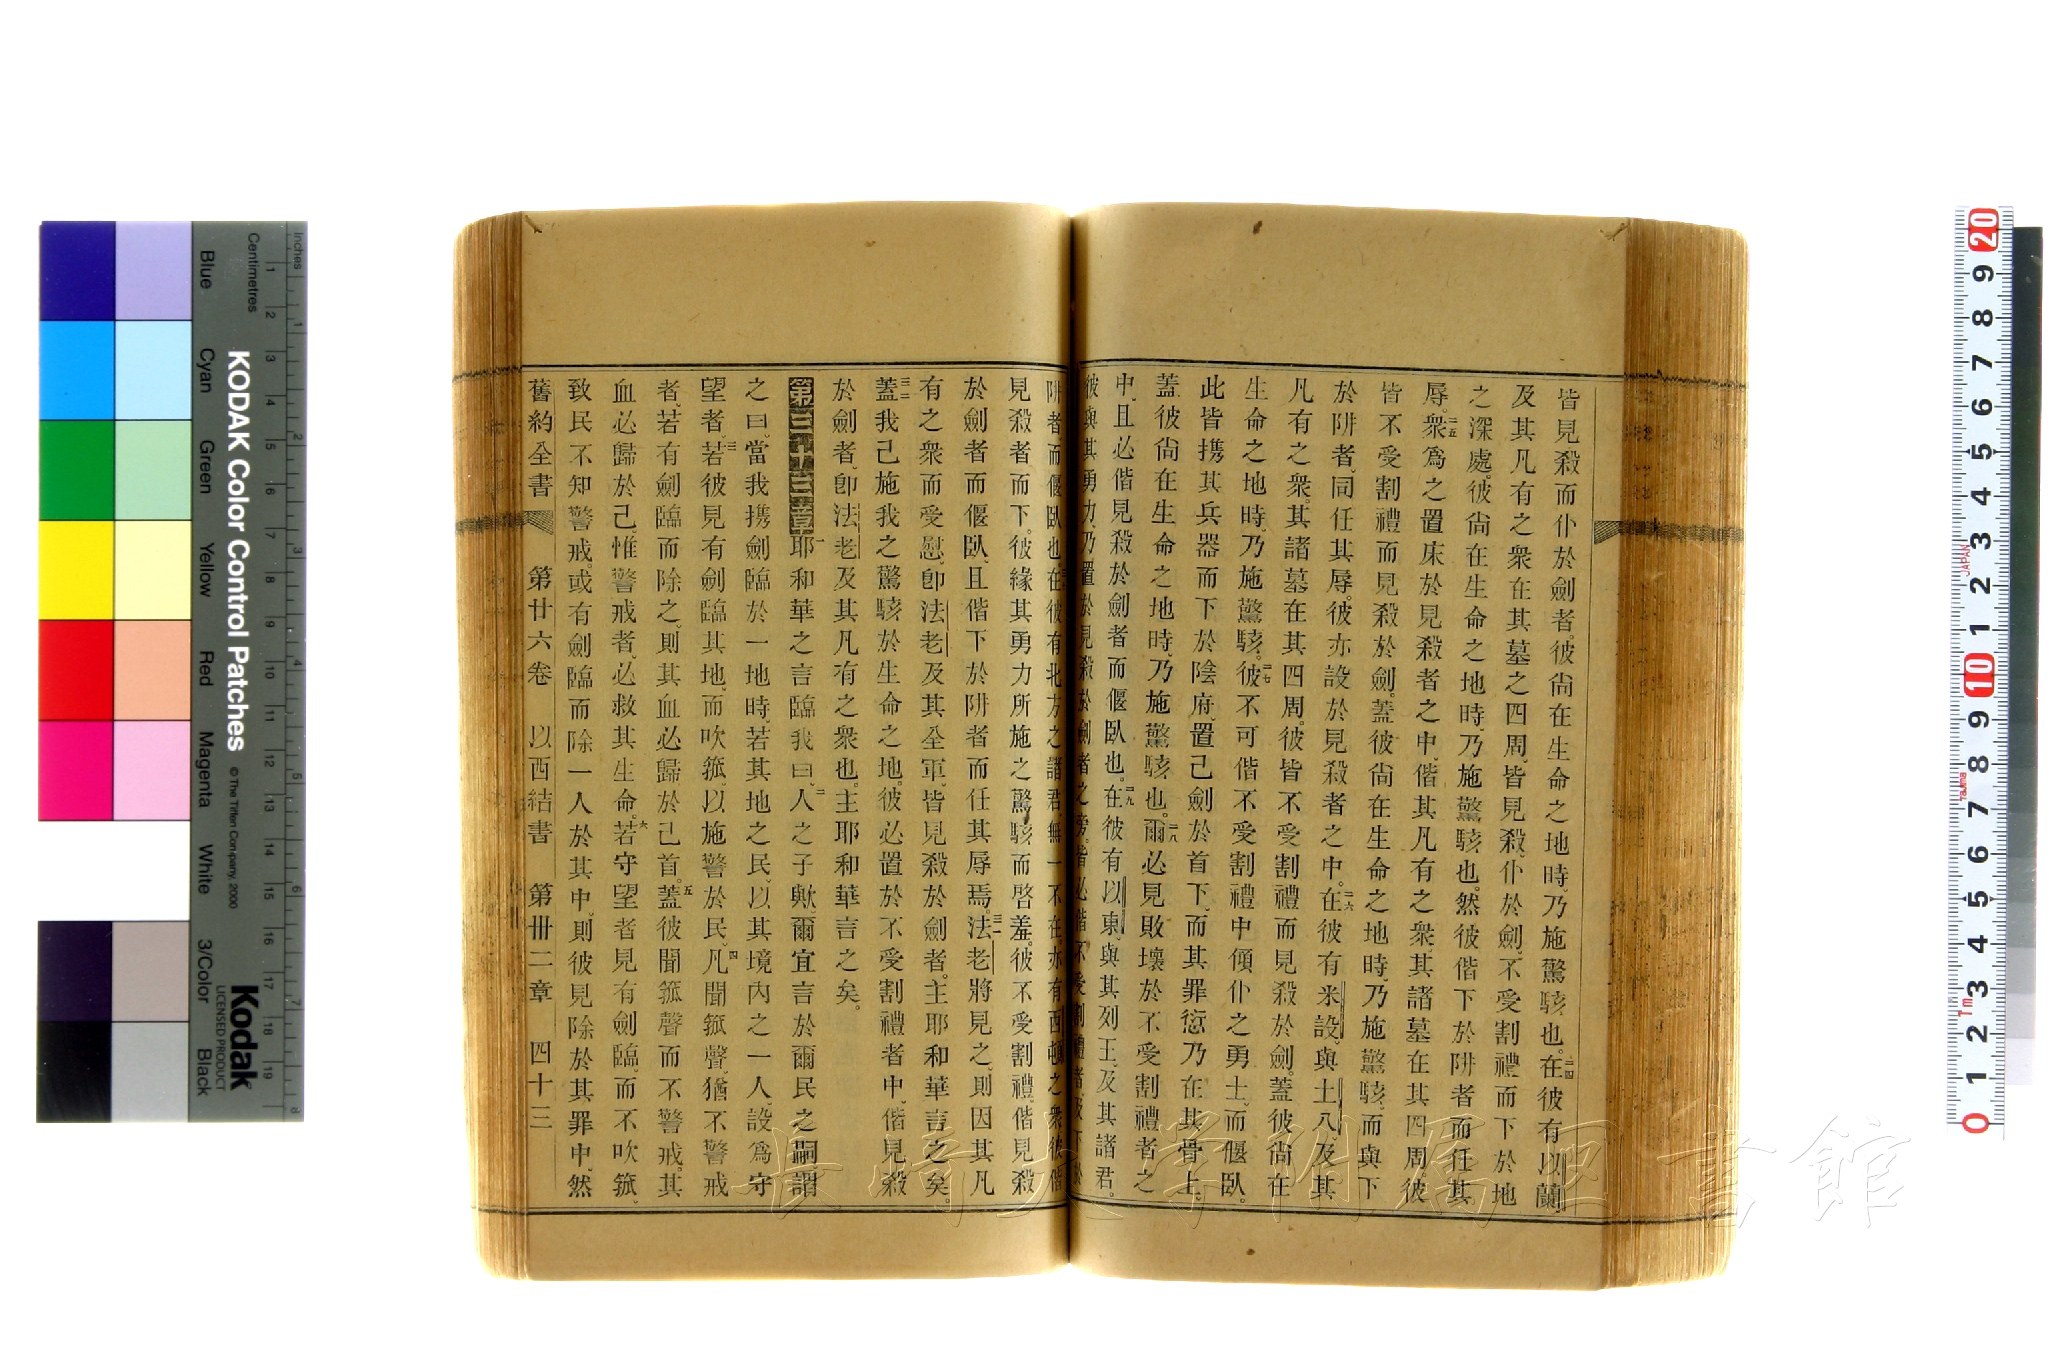 皆見殺而仆於劍者。彼尙在生命之地時、乃施驚駭也。二四在彼有以蘭、
及其凡有之衆在其墓之四周、皆見殺、仆於劍、不受割禮而下於地
之深處。彼尙在生命之地時、乃施驚駭也。然彼偕下於阱者而任其
辱。二五衆爲之置床於見殺者之中、偕其凡有之衆、其諸墓在其四周、彼
皆不受割禮而見殺於劍。蓋彼尙在生命之地時、乃施驚駭、而與下
於阱者、同任其辱。彼亦設於見殺者之中。二六在彼有米設、與土八、及其
凡有之衆、其諸墓在其四周。彼皆不受割禮而見殺於劍。蓋彼尙在
生命之地時、乃施驚駭。二七彼不可偕不受割禮中傾仆之勇士、而偃臥。
此皆攜其兵器而下於陰府、置己劍於首下、而其罪愆乃在其骨上
蓋彼尙在生命之地時、乃施驚駭也。二八爾必見敗壞於不受割禮者之
中、且必偕見殺於劍者而偃臥也。二九在彼有以東、與其列王、及其諸君。
彼與其勇力、乃置於見殺於劍者之旁。皆必偕不受割禮者、及下於
阱者、而偃臥也。三十在彼有北方之諸君、無一不在、亦有西頓之衆、彼偕
見殺者而下。彼緣其勇力所施之驚駭而啓羞。彼不受割禮、偕見殺
於劍者而偃臥、且偕下於阱者而任其辱焉。三一法老將見之、則因其凡
有之衆而受慰、卽法老及其全軍、皆見殺於劍者。主耶和華言之矣。
三二蓋我己施我之驚駭於生命之地。彼必置於不受割禮者中、偕見殺
於劍者、卽法老及其凡有之衆也。主耶和華言之矣。
第三十三章一耶和華之言臨我曰、二人之子歟、爾宜言於爾民之嗣、謂
之曰、當我攜劍臨於一地時、若其地之民、以其境內之一人、設爲守
望者、三若彼見有劍臨其地、而吹箛、以施警於民、四凡聞箛聲、猶不警戒
者、若有劍臨而除之、則其血必歸於己首。五蓋彼聞箛聲而不警戒、其
血必歸於己、惟警戒者、必救其生命。六若守望者見有劍臨、而不吹箛、
致民不知警戒。或有劍臨而除一人於其中、則彼見除於其罪中、然
舊約全書 第廿六卷 以西結書 第卅二章 四十三
Inches
Centimetres
KODAK Color Control Patches
© The Tiffen Company, 2000
Kodak
LICENSED PRODUCT
Blue
Cyan
Green
Yellow
Red
Magenta
White
3/Color
Black
JAPAN
Tajima
長崎大学附属図書館